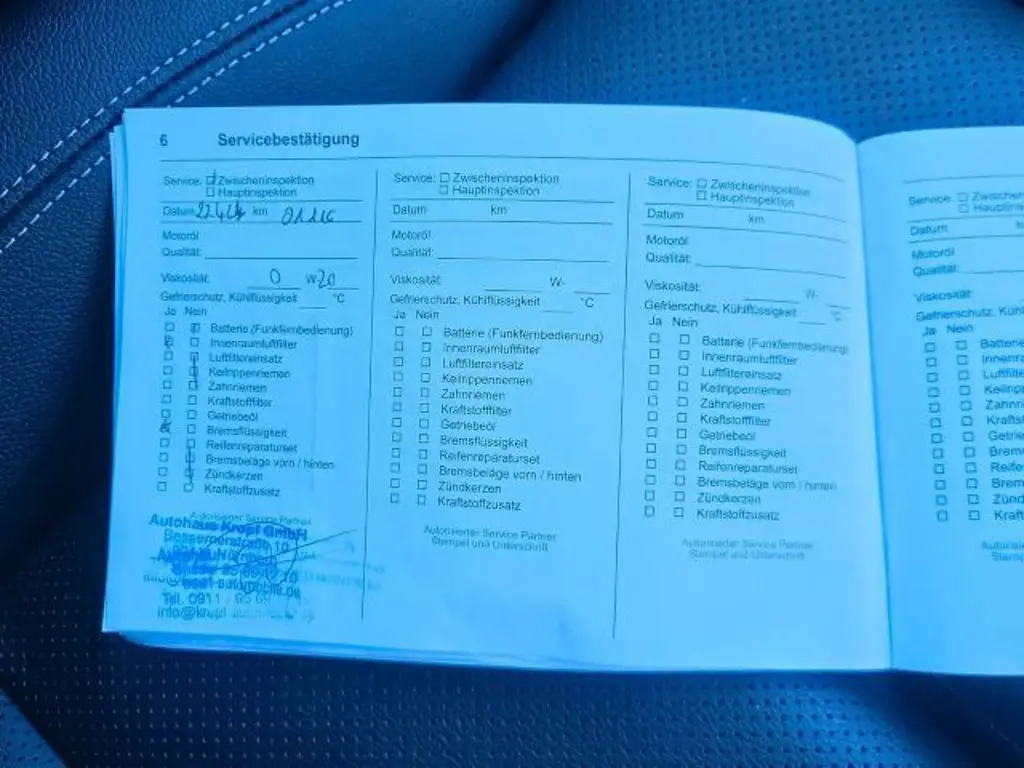 6 Servicebestätigung
Service: Zwischeninspektion
Hauptinspektion
Datum km
Motoröl
Qualität:
Viskosität: 0 W-20
Gefrierschutz, Kühlflüssigkeit °C
Ja Nein
Batterie (Funkfernbedienung)
Innenraumluftfilter
Luftfiltereinsatz
Keilrippenriemen
Zahnriemen
Kraftstofffilter
Getriebeöl
Bremsflüssigkeit
Reifenreparaturset
Bremsbeläge vorn / hinten
Zündkerzen
Kraftstoffzusatz
Autorisierter Service Partner
Autohaus Kropf GmbH
10
Tel. 0911
Service: Zwischeninspektion
Hauptinspektion
Datum km
Motoröl
Qualität:
Viskosität: W-
Gefrierschutz, Kühlflüssigkeit °C
Ja Nein
Batterie (Funkfernbedienung)
Innenraumluftfilter
Luftfiltereinsatz
Keilrippenriemen
Zahnriemen
Kraftstofffilter
Getriebeöl
Bremsflüssigkeit
Reifenreparaturset
Bremsbeläge vorn / hinten
Zündkerzen
Kraftstoffzusatz
Autorisierter Service Partner
Stempel und Unterschrift
Service: Zwischeninspektion
Hauptinspektion
Datum km
Motoröl
Qualität:
Viskosität: W-
Gefrierschutz, Kühlflüssigkeit °C
Ja Nein
Batterie (Funkfernbedienung)
Innenraumluftfilter
Luftfiltereinsatz
Keilrippenriemen
Zahnriemen
Kraftstofffilter
Getriebeöl
Bremsflüssigkeit
Reifenreparaturset
Bremsbeläge vorn / hinten
Zündkerzen
Kraftstoffzusatz
Autorisierter Service Partner
Stempel und Unterschrift
Service:
Datum
Motoröl
Qualität:
Ja Nein